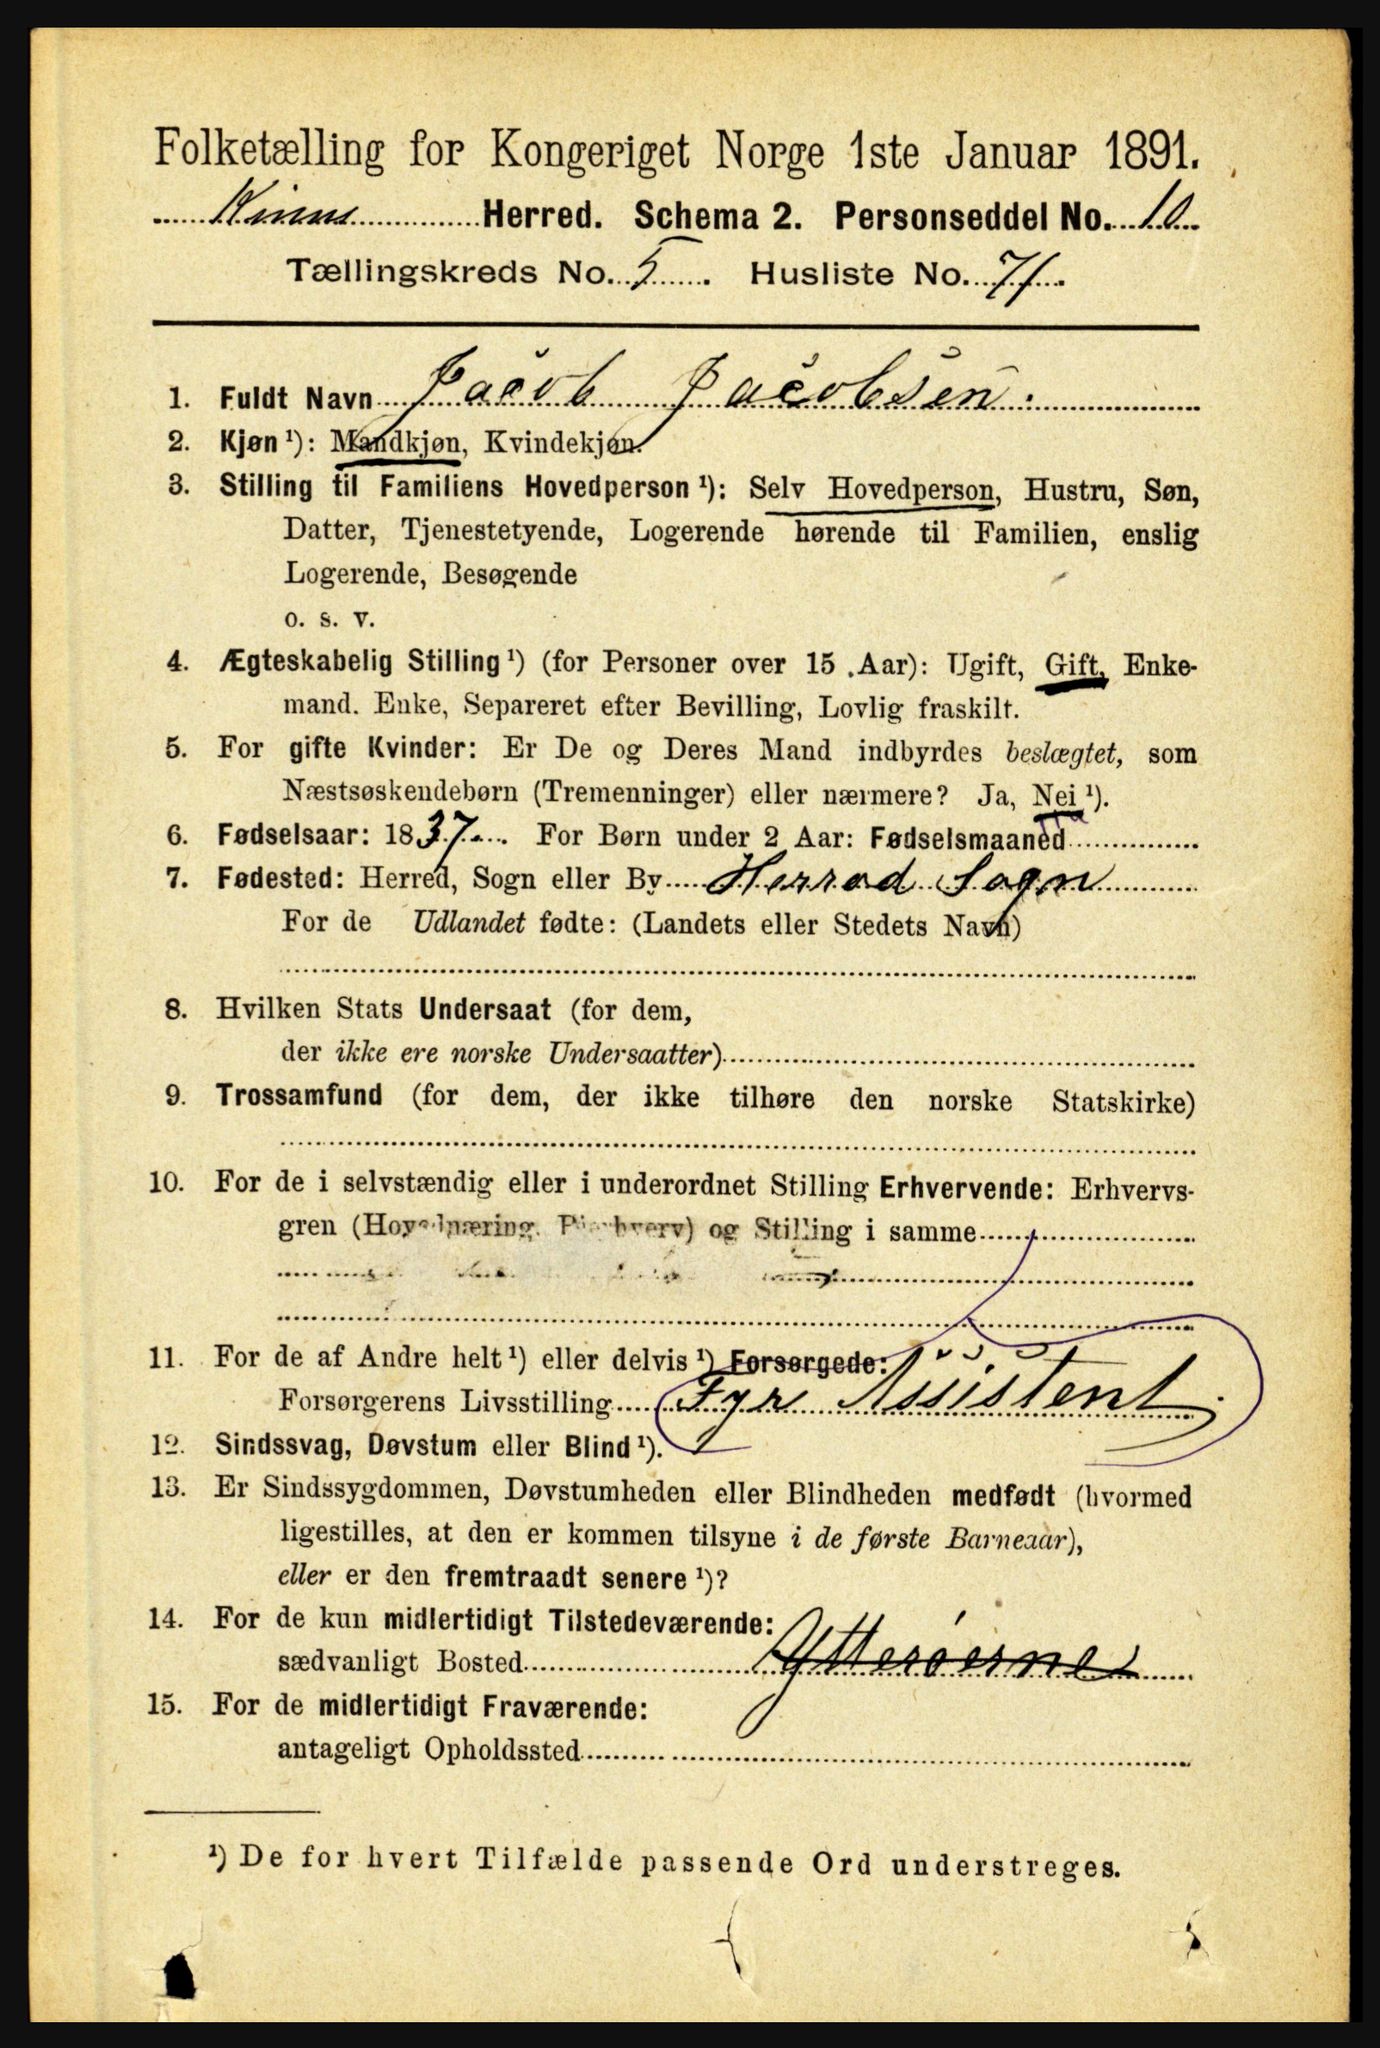 Folketælling for Kongeriget Norge 1ste Januar 1891.
Kinns Herred. Schema 2. Personseddel No. 10
Tællingskreds No. 5. Husliste No. 71.
1. Fuldt Navn Jacob Jacobsen.
2. Kjøn ¹): Mandkjøn, Kvindekjøn.
3. Stilling til Familiens Hovedperson ¹): Selv Hovedperson, Hustru, Søn,
Datter, Tjenestetyende, Logerende hørende til Familien, enslig
Logerende, Besøgende
o. s. v.
4. Ægteskabelig Stilling ¹) (for Personer over 15 Aar): Ugift, Gift, Enke-
mand. Enke, Separeret efter Bevilling, Lovlig fraskilt.
5. For gifte Kvinder: Er De og Deres Mand indbyrdes beslægtet, som
Næstsøskendebørn (Tremenninger) eller nærmere? Ja, Nei ¹).
6. Fødselsaar: 1837. For Børn under 2 Aar: Fødselsmaaned
7. Fødested: Herred, Sogn eller By Herrad Sogn
For de Udlandet fødte: (Landets eller Stedets Navn)
8. Hvilken Stats Undersaat (for dem,
der ikke ere norske Undersaatter)
9. Trossamfund (for dem, der ikke tilhøre den norske Statskirke)
10. For de i selvstændig eller i underordnet Stilling Erhvervende: Erhvervs-
gren (Hovednæring, Bierhverv) og Stilling i samme
11. For de af Andre helt ¹) eller delvis ¹) Forsørgede:
Forsørgerens Livsstilling Fyr Assistent
12. Sindssvag, Døvstum eller Blind ¹).
13. Er Sindssygdommen, Døvstumheden eller Blindheden medfødt (hvormed
ligestilles, at den er kommen tilsyne i de første Barneaar),
eller er den fremtraadt senere ¹)?
14. For de kun midlertidigt Tilstedeværende:
sædvanligt Bosted Ytterøerne
15. For de midlertidigt Fraværende:
antageligt Opholdssted
¹) De for hvert Tilfælde passende Ord understreges.